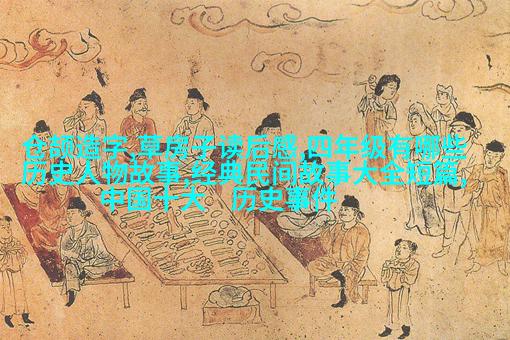 仓颉造字,草房子读后感,四年级有哪些
历史人物故事,经典民间故事大全短篇,
中国十大 历史事件